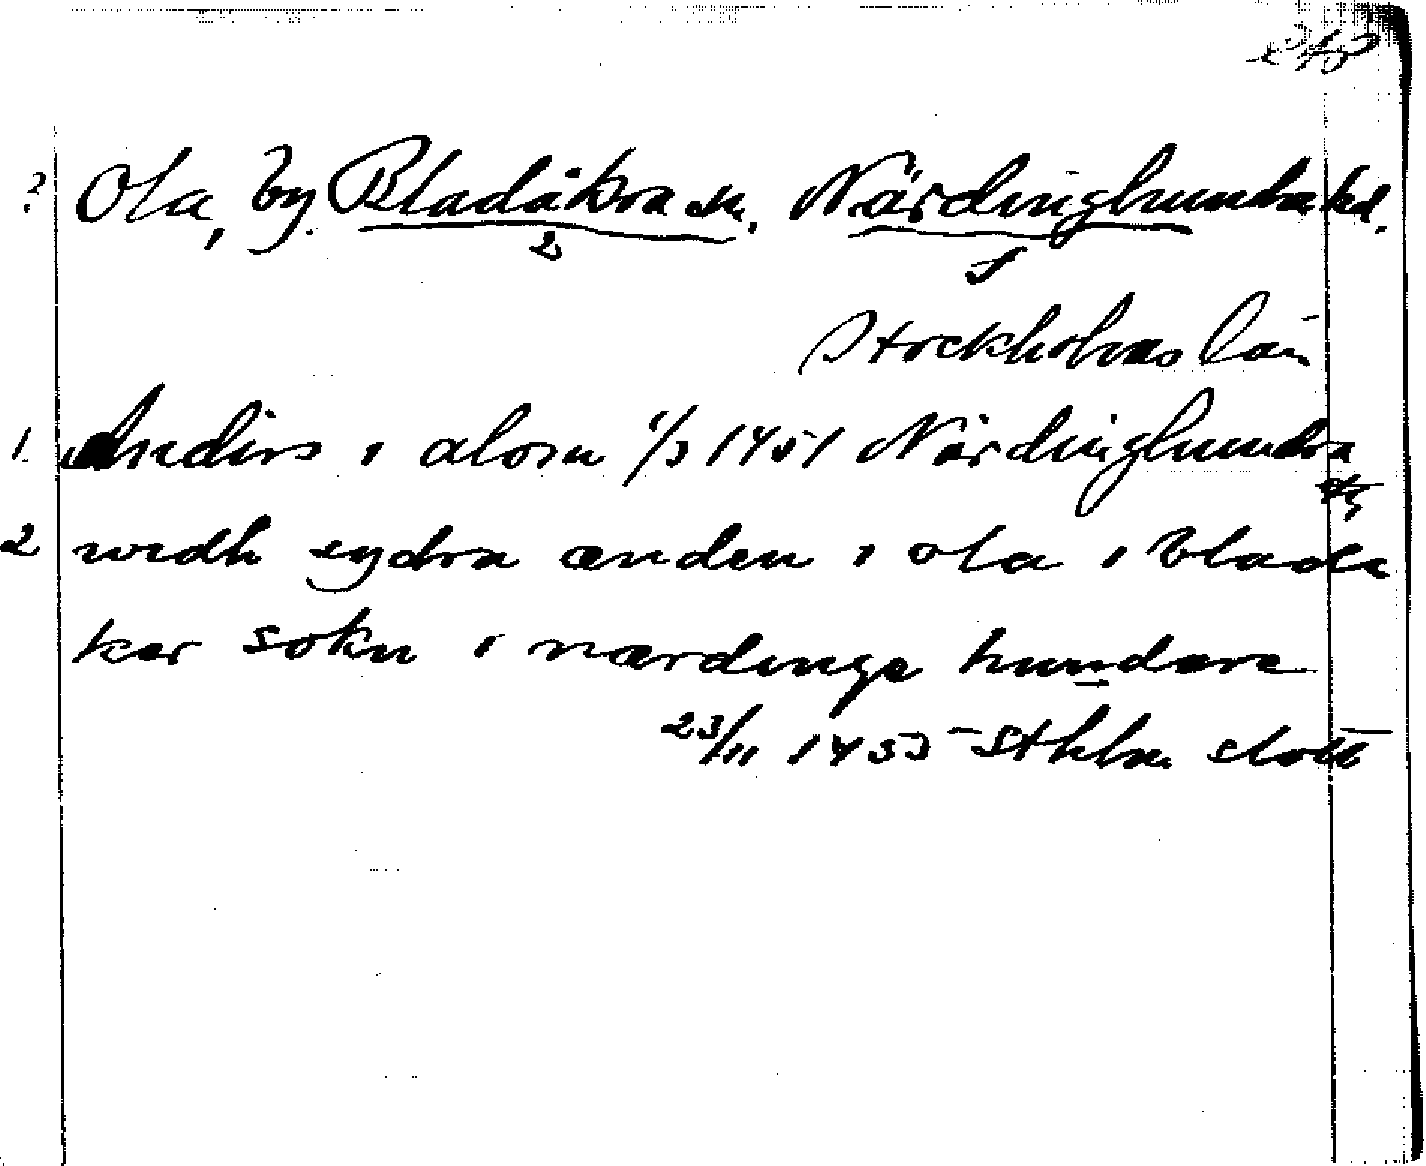 ? Ola, by. Bladåkra sn, Närdinghundra hd.
2 1
Stockholms län
1. Anders i alosn 1/3 1451 Närdinghundra
2 widh sydra ænden i ola i blada
ker sokn i nærdinge hundare
23/11 1455 Sthlm slott